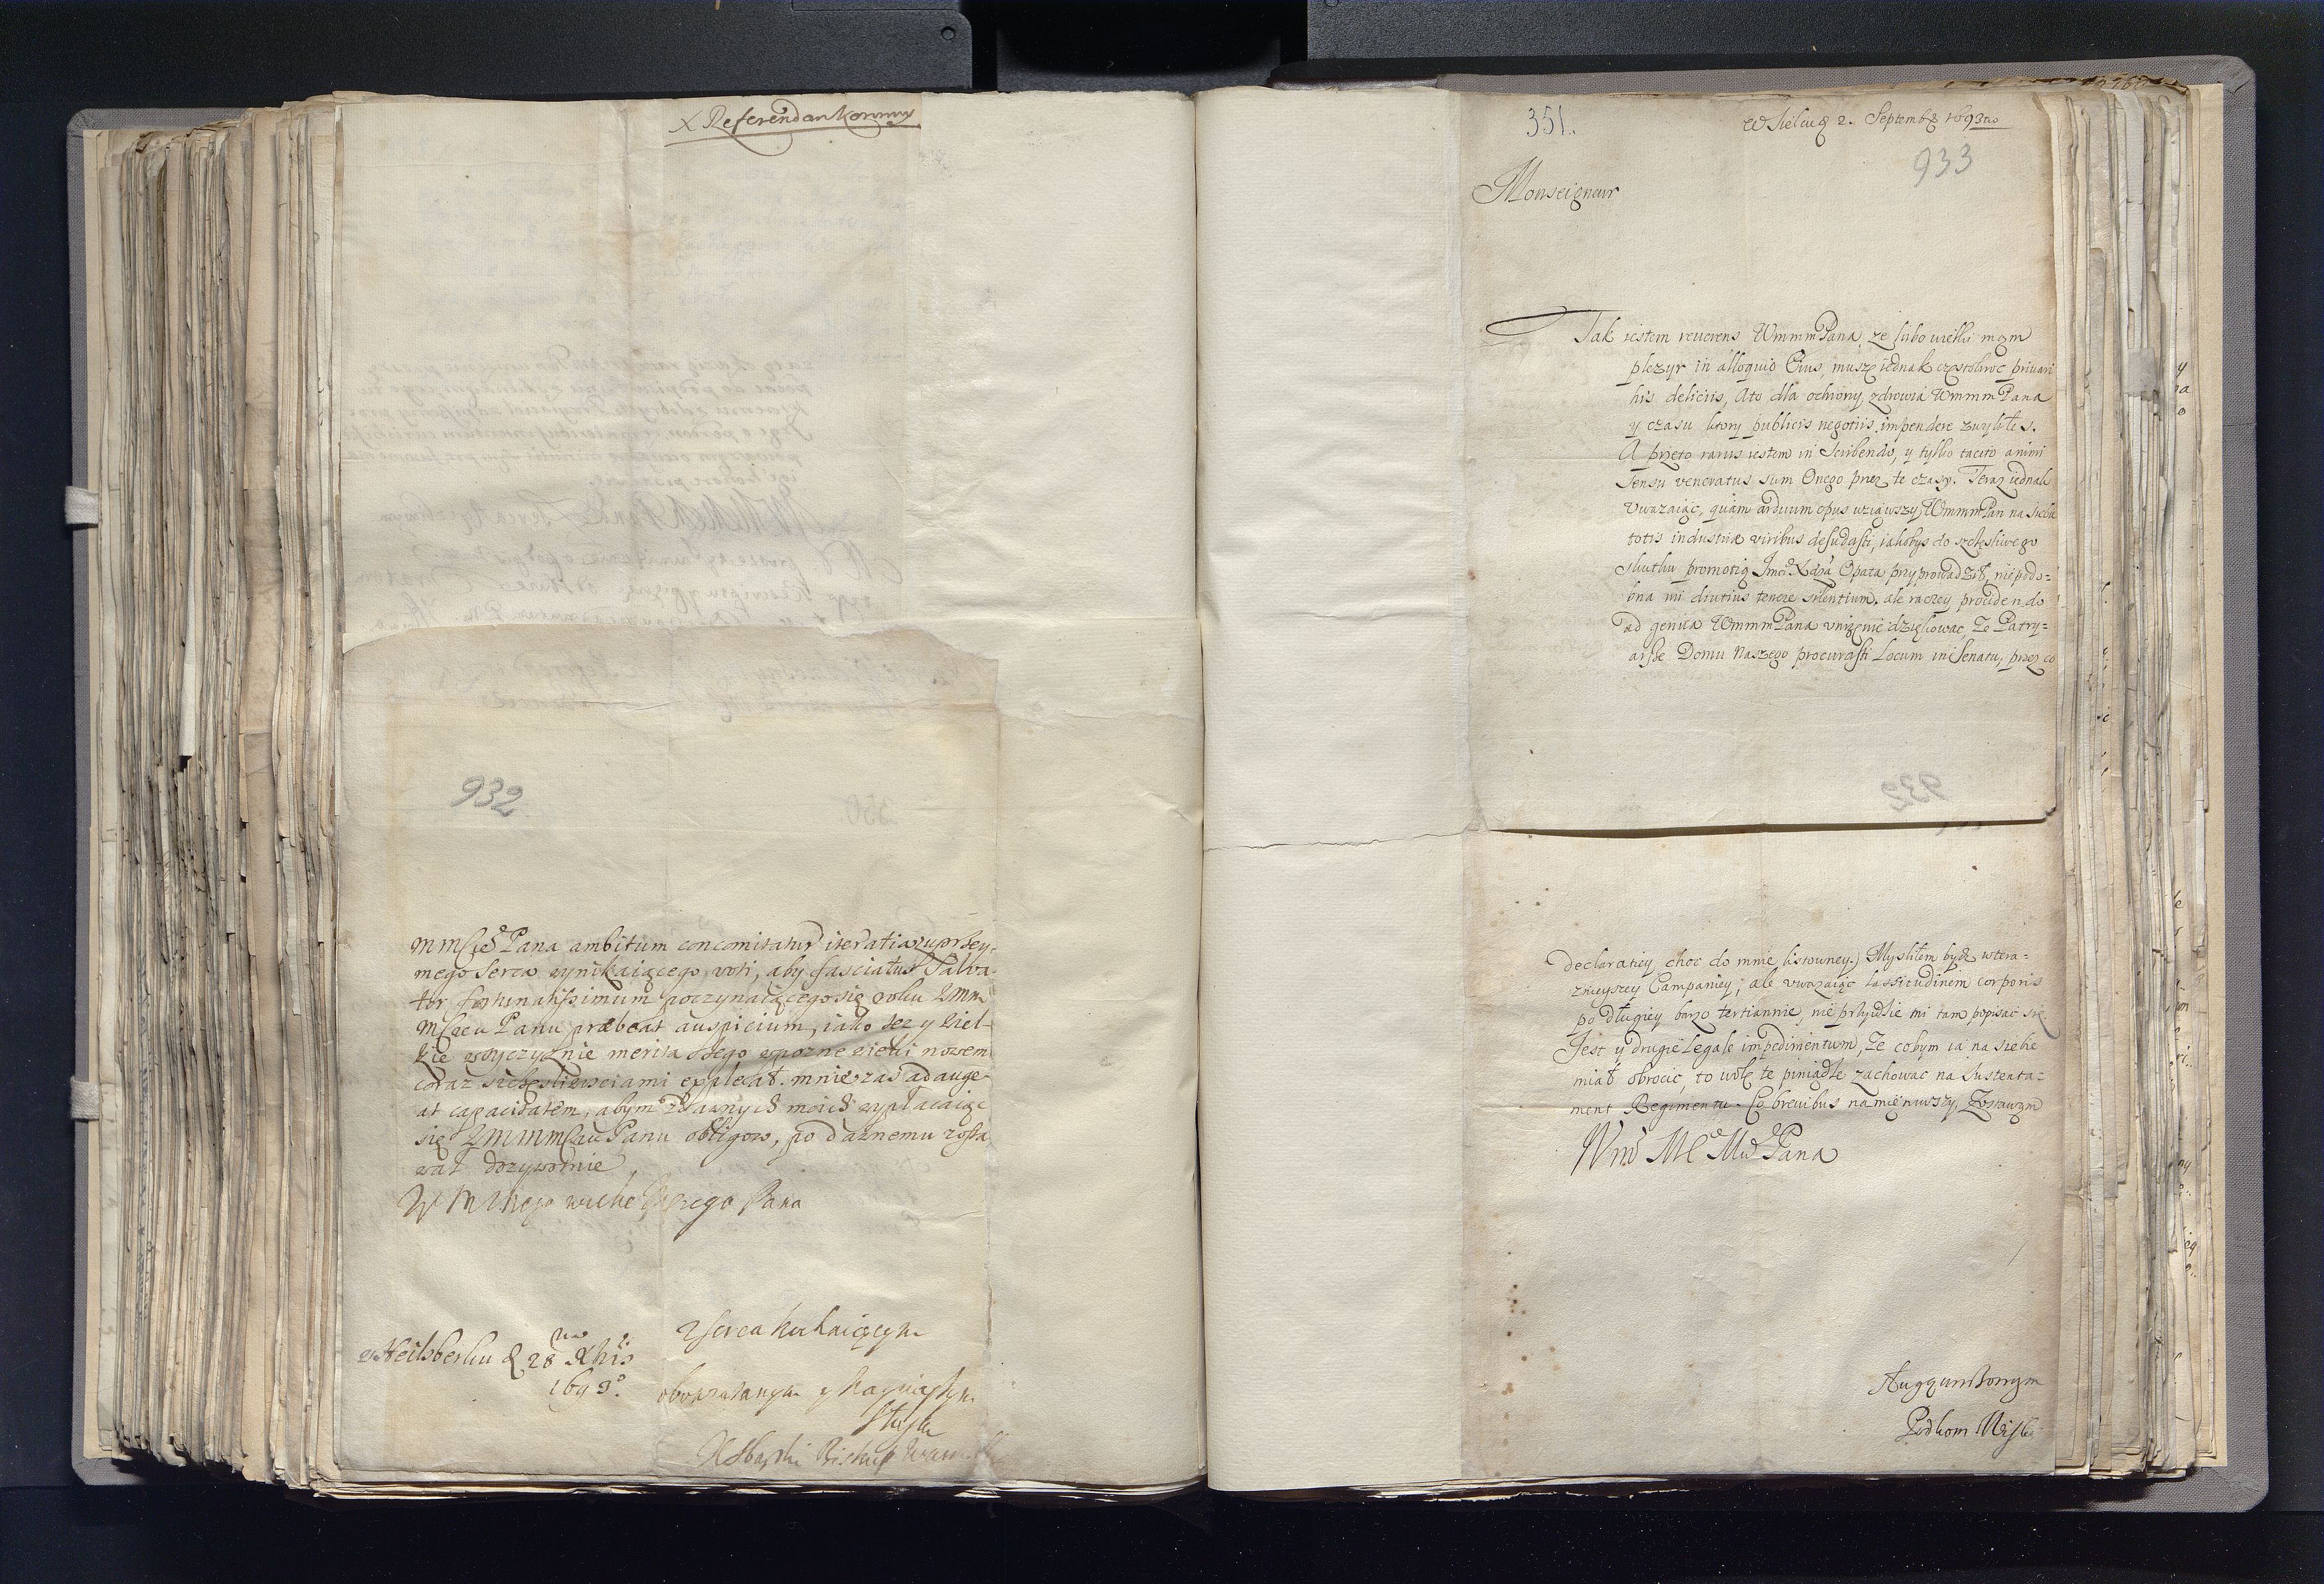 X Referendarz Koronny
932
mmście Pana ambitum concomitatur iteratia zuprzey-
mego serca wynikaiącego voti, aby fasciatus Salva-
tor fortunatissimum poczynaiącego się roku Wmm
Mściu Panu præbeat auspicium, iako tez y Wiel-
kie Oyczyznie merita Jego wpozne wieki nowemi
coraz szczęsliwosciami expleat. mnie zas adauge-
at capacitatem, abym zdawnych moich wypłacaiąc
się Wmmmściu Panu obligow, po dawnemu zosta
wał dozywotnie
W M Mego wielce Pana
zserca kochaiącym
obowiązanym y naynizszym
sługą
Zbąski Biskup Warm
w Heilsberku d 28 Xbris
1693.
351.
w Sielcu d 2. Septembr 1693tio
933
Monseigneur
Tak iestem reverens WmmmPana, ze lubo wielki mam
plezyr in alloquio Eius, muszę iednak częstokroc privari
his deliciis, Ato dla ochrony zdrowia WmmmPana
y czasu ktory publicis negotiis impendere zwykłes.
A przeto rarus iestem in Scribendo, y tylko tacito animi
sensu veneratus sum Onego przez te czasy. Teraz iednak
Uwazaiąc, quam arduum opus wziąwszy WmmmPan na siebie
totis industriæ viribus desudasti, iakobys do szczęsliwego
skutku promotią Jmci Xdza Opata przyprowadził, niepodo-
bna mi diutius tenere silentium. ale raczey procidendo
ad genua WmmmPana unizenie dziękowac, Ze Patry-
arsze Domu Naszego procurasti Locum in Senatu, przez co
932
declaratiey choc do mnie listowney. Mysliłem bydz wtera-
znieyszey Campaniey, ale uwazaiąc lassitudinem corporis
po długiey barzo tertiannie, nie przyidzie mi tam popisac się.
Jest y drugie Legale impedimentum, Ze cobym ia na siebie
miał obrocic, to wolę te piniądze zachowac na sustenta-
ment Regimentu. Co brevibus namieniwszy, Zostawam
Wm Mć Mo Pana
Podkom